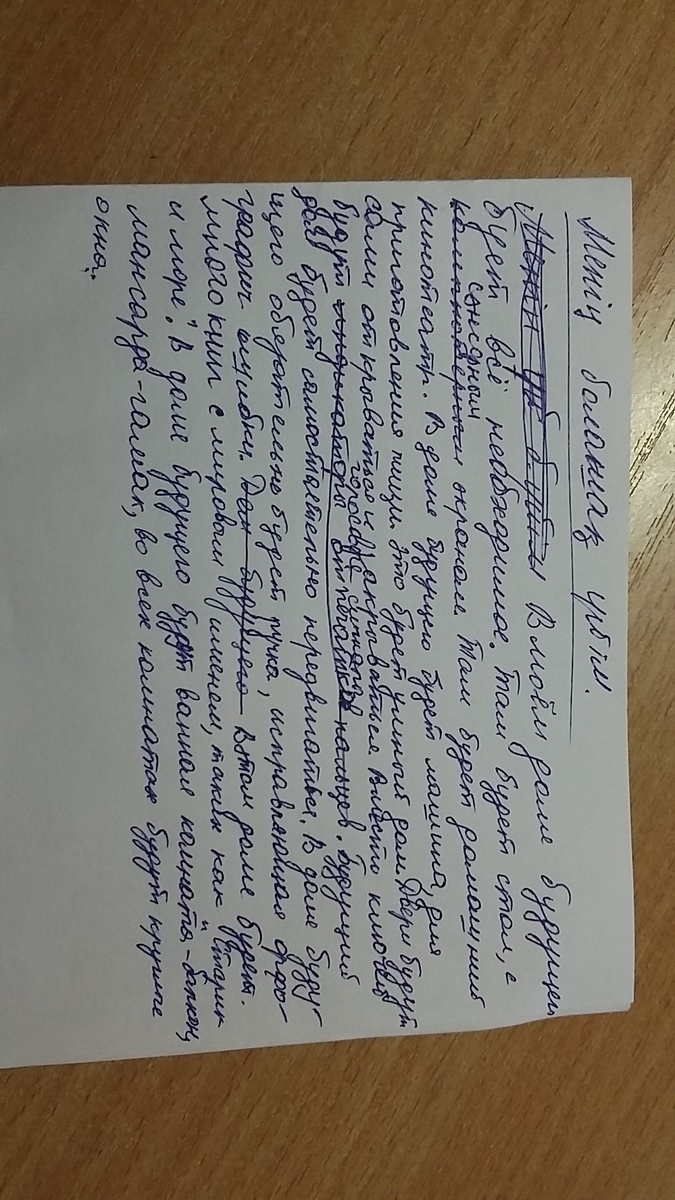 Менің болашақ үйім.
В моём доме будущем
будет всё необходимое. Там будет стол, с
сенсорным экраном. Там будет домашний
кинотеатр. В доме будущего будет машина для
приготовления пищи. Это будет умный дом. Двери будут
сами открываться и закрываться. Вместо ключей
будут голосовые сигналы отпечатков пальцев. Будущий
дом будет самостоятельно передвигаться. В доме буду-
щего обязательно будет ручка, исправляющая орфо-
график ошибки. Дом будущего В том доме будет
много книг с мировым именем, таких как "Старик
и море". В доме будущего будет ванная комната-балкон,
мансарда-гамак, во всех комнатах будут круглые
окна.